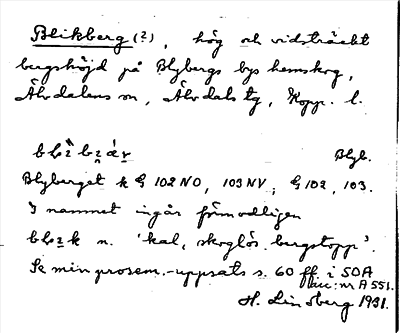 Blikberg (?), hög och vidsträckt
bergshöjd på Blybergs bys hemskog,
Älvdalens sn, Älvdals tg, Kopp. l.
Blyb.
Blyberget k G 102 NO, 103 NV; G 102, 103.
I namnet ingår förmodligen
n. 'kal, skoglös bergstopp'.
Se min prosem.-uppsats s. 60 ff i SOA
acc: nr A 551.
H. Linsberg 1931.